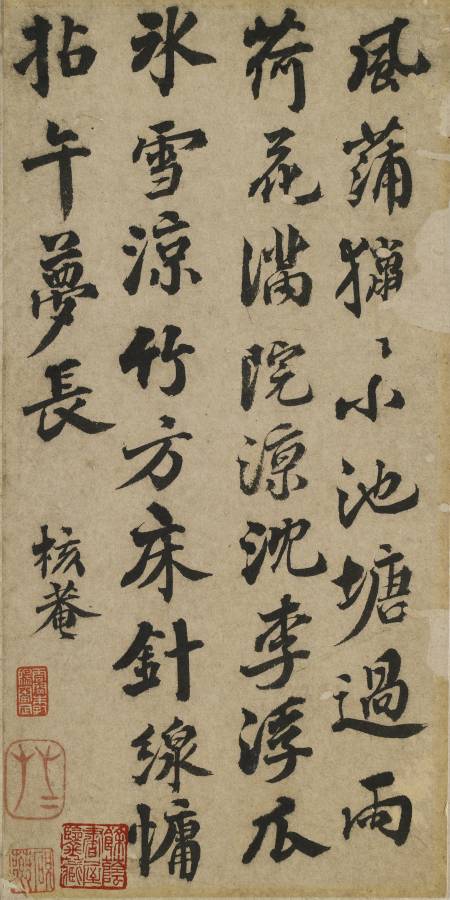 風蒲獵〻小池塘過雨
荷花滿院涼沈李浮瓜
氷雪涼竹方床針線慵
拈午夢長
核菴